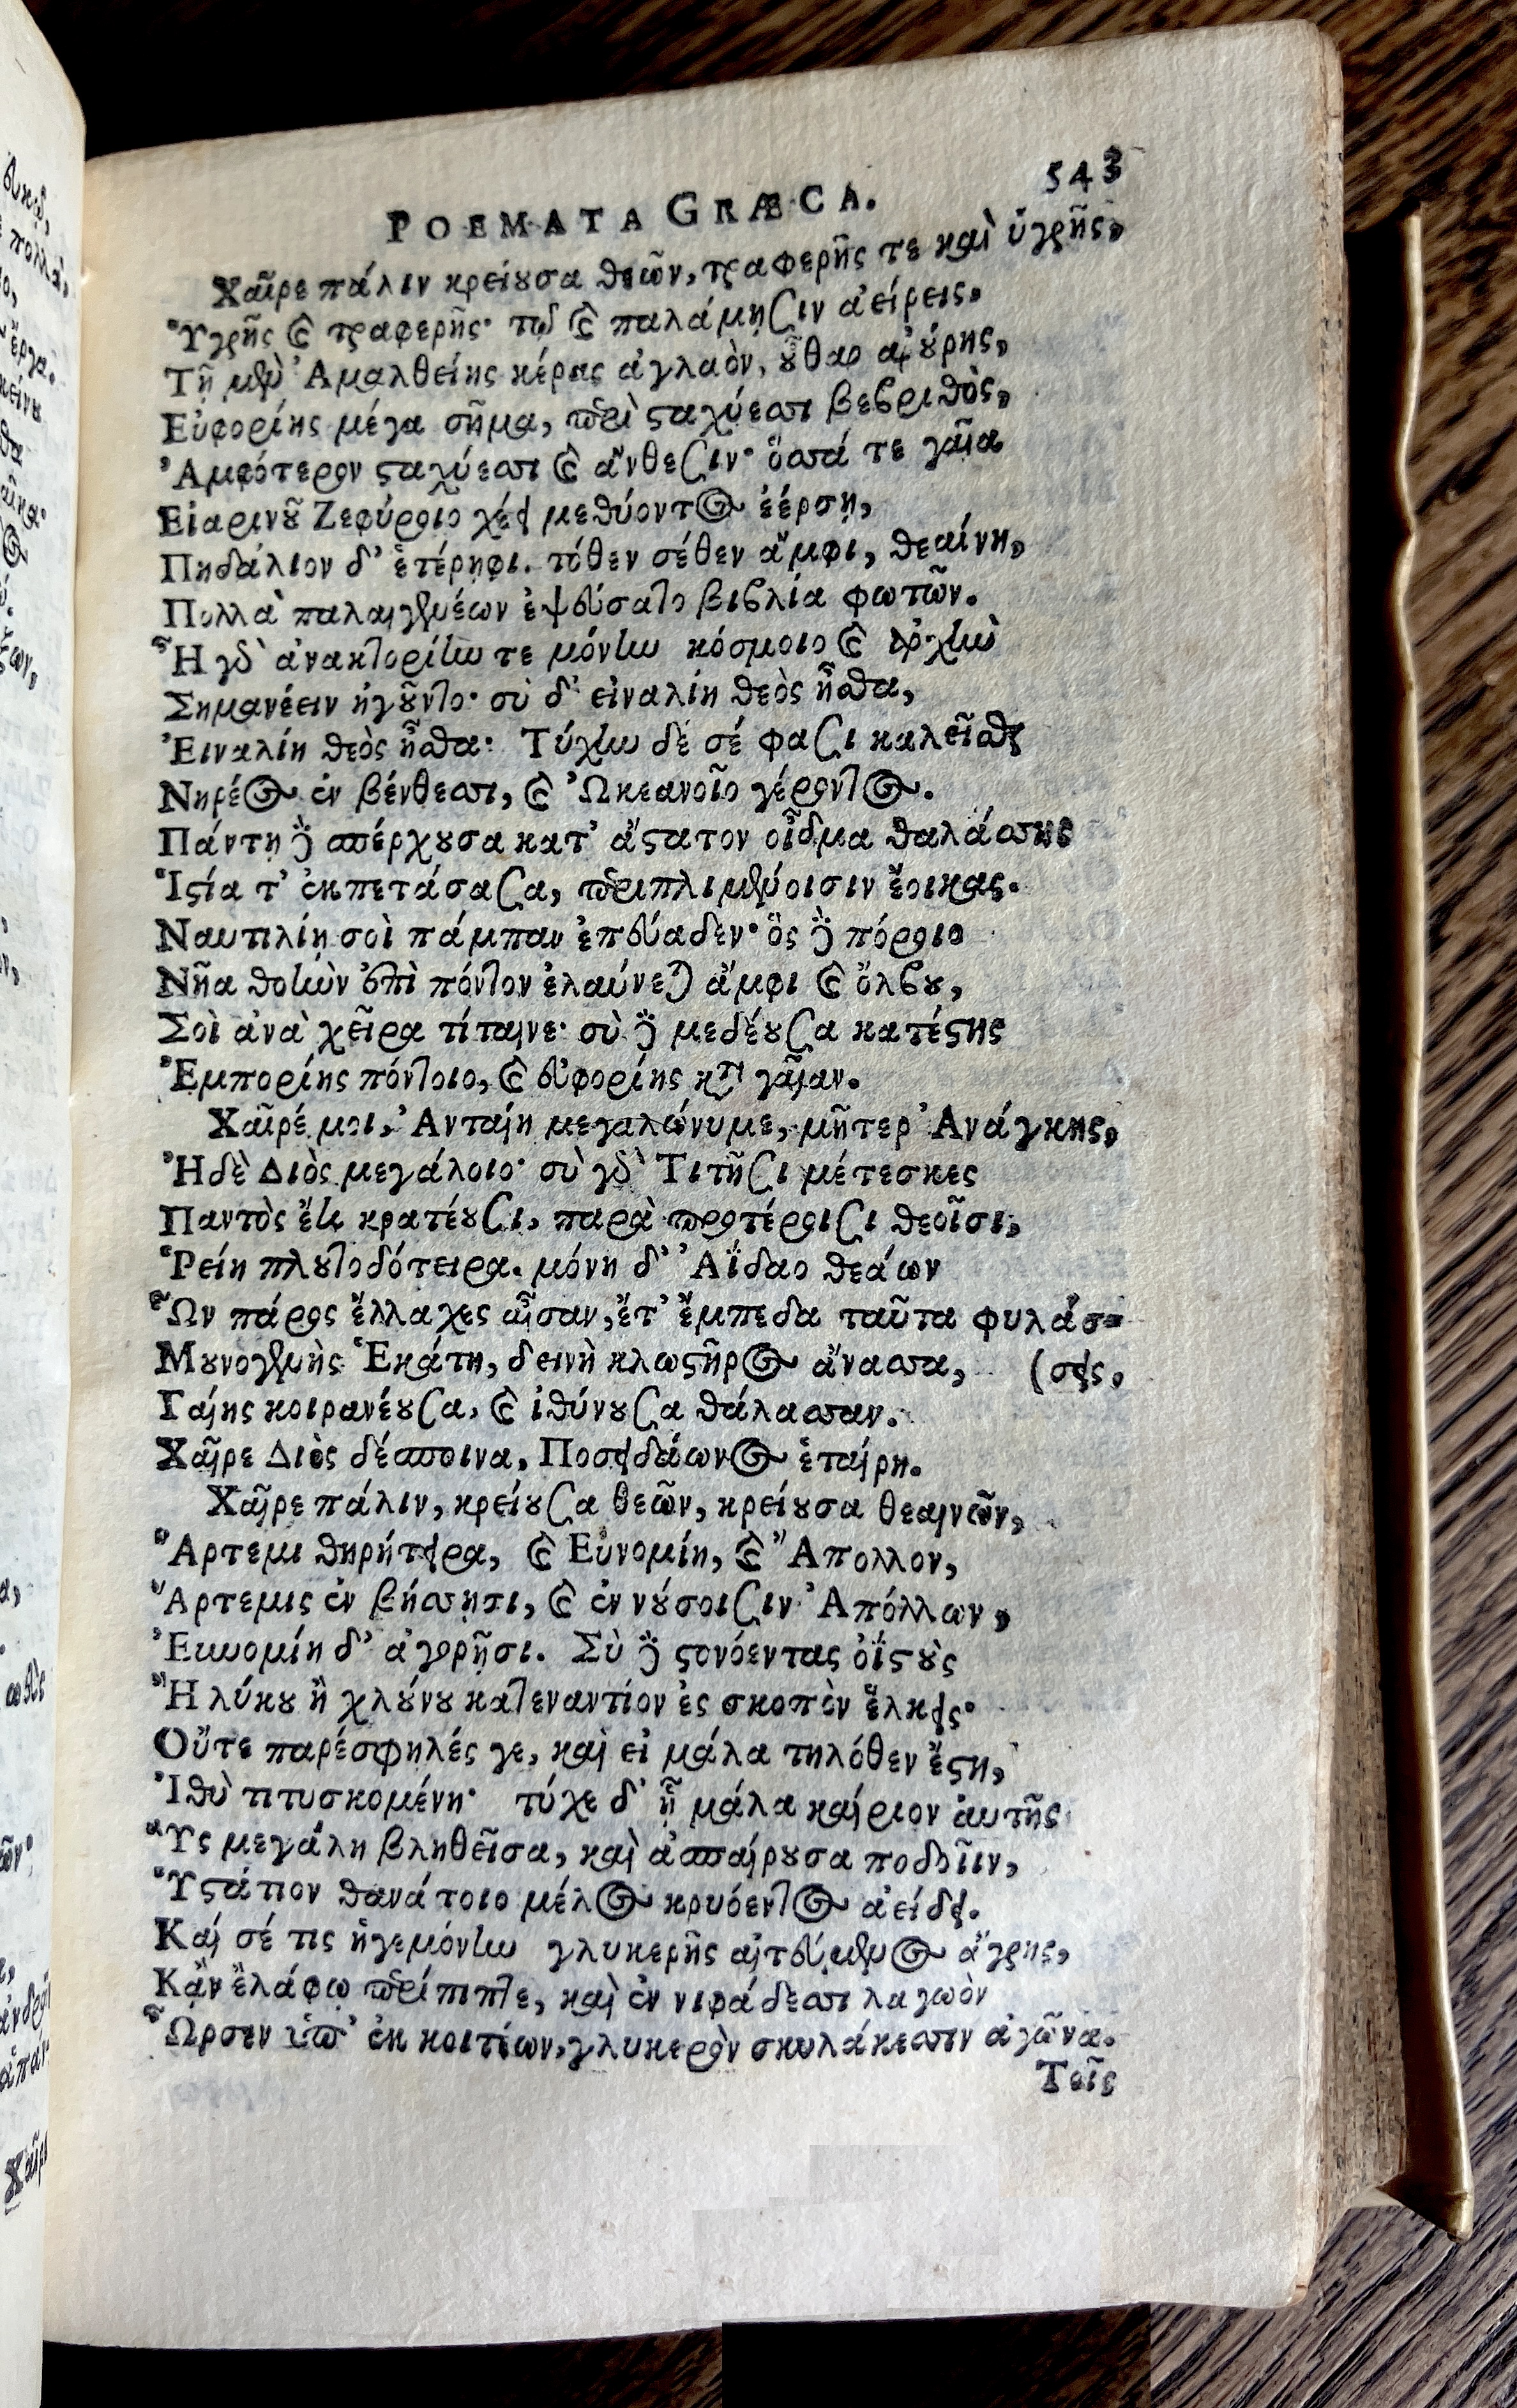 POEMATA GRÆCA. 543
Χαῖρε πάλιν κρείουσα θεῶν, τραφερῆς τε καὶ ὑγρῆς,
Ὑγρῆς καὶ τραφερῆς· τῶ καὶ παλάμῃσιν ἀείρεις.
Τῇ μὲν Ἀμαλθείης κέρας ἀγλαὸν, οὖθαρ ἀρούρης,
Εὐφορίης μέγα σῆμα, περὶ σταχύεσσι βεβριθὸς,
Ἀμφότερον σταχύεσσι καὶ ἄνθεσιν· ὅσσά τε γαῖα
Εἰαρινοῦ Ζεφύροιο χέει μεθύοντος ἐέρσῃ,
Πηδάλιον δ' ἑτέρηφι. τόθεν σέθεν ἄμφι, θεαίνη,
Πολλὰ παλαιγενέων ἐψεύσατο βιβλία φωτῶν.
Ἦ γὰρ ἀνακτορίην τε μόνην κόσμοιο καὶ ἀρχὴν
Σημανέειν ἡγοῦντο· σὺ δ' εἰναλίη θεὸς ἦσθα,
Ἐιναλίη θεὸς ἦσθα: Τύχην δέ σέ φασι καλεῖσθαι
Νηρέος ἐν βένθεσσι, καὶ Ὠκεανοῖο γέροντος.
Πάντῃ δὲ σπέρχουσα κατ' ἄστατον οἶδμα θαλάσσης
Ἱστία τ' ἐκπετάσασα, περιπλιμένοισιν ἔοικας.
Ναυτιλίη σοὶ πάμπαν ἐπεύαδεν· ὃς δὲ πόροιο
Νῆα θοὴν ἐπὶ πόντον ἐλαύνεται ἄμφι καὶ ὄλβου,
Σοὶ ἀνὰ χεῖρα τίταινε· σὺ δὲ μεδέουσα κατέστης
Ἐμπορίης πόντοιο, καὶ εὐφορίης κατὰ γαῖαν.
Χαῖρέ μοι, Ἀνταίη μεγαλώνυμε, μῆτερ Ἀνάγκης,
Ἠδὲ Διὸς μεγάλοιο· σὺ γὰρ Τιτῆσι μέτεσκες
Παντὸς ἔτι κρατέουσι, παρὰ προτέροισι θεοῖσι,
Ῥείη πλουτοδότειρα. μόνη δ' Ἀΐδαο θεάων
Ὧν πάρος ἔλλαχες αἶσαν, ἔτ' ἔμπεδα ταῦτα φυλάσ-
Μουνογενὴς Ἑκάτη, δεινὴ κλωστῆρος ἄνασσα, (σεις,
Γαίης κοιρανέουσα, καὶ ἰθύνουσα θάλασσαν.
Χαῖρε Διὸς δέσποινα, Ποσειδάωνος ἑταίρη.
Χαῖρε πάλιν, κρείουσα θεῶν, κρείουσα θεαινῶν,
Ἄρτεμι θηρήτειρα, καὶ Εὐνομίη, καὶ Ἄπολλον,
Ἄρτεμις ἐν βήσσῃσι, καὶ ἐν νούσοισιν Ἀπόλλων,
Ἐυνομίη δ' ἀγορῇσι. Σὺ δὲ στονόεντας ὀϊστοὺς
Ἢ λύκου ἢ χλούνου κατεναντίον ἐς σκοπὸν ἕλκεις·
Οὔτε παρέσφηλές γε, καὶ εἰ μάλα τηλόθεν ἔστη,
Ἰθὺ τιτυσκομένη· τύχε δ' ᾗ μάλα καίριον ἀυτῆς
Ὗς μεγάλη βληθεῖσα, καὶ ἀσπαίρουσα ποδοῖιν,
Ὑστάτιον θανάτοιο μέλος κρυόεντος ἀείδει.
Καί σέ τις ἡγεμόνην γλυκερῆς αἰτεύμενος ἄγρης,
Κἂν ἐλάφῳ περίπιπτε, καὶ ἐν νιφάδεσσι λαγωὸν
Ὦρσεν ὑπ' ἐκ κοιτέων, γλυκερὸν σκυλάκεσσιν ἀγῶνα.
Τοῖς